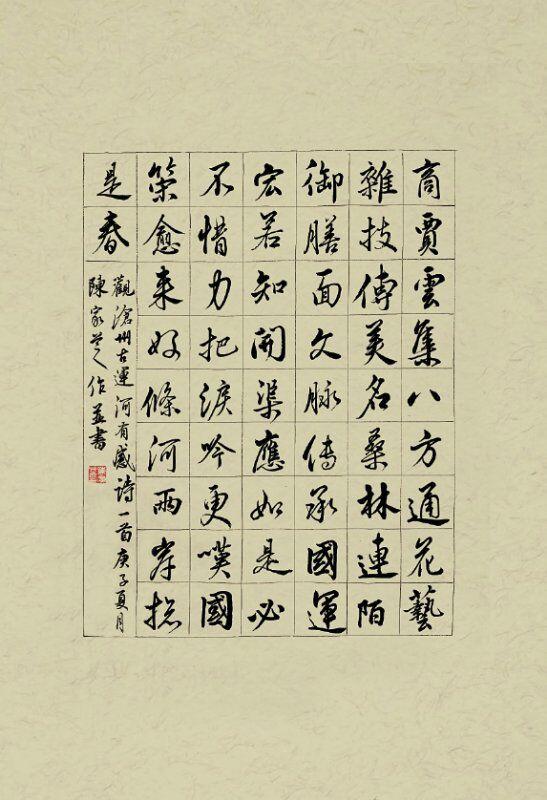 商賈雲集八方通花藝
雜技傳美名桑林連陌
御膳面文脉傳承國運
宏若知開渠應如是必
不惜力把淚吟更嘆國
策愈来好條河兩岸總
是春
觀滄州古運河有感詩一首庚子夏月
陳家芝作並書